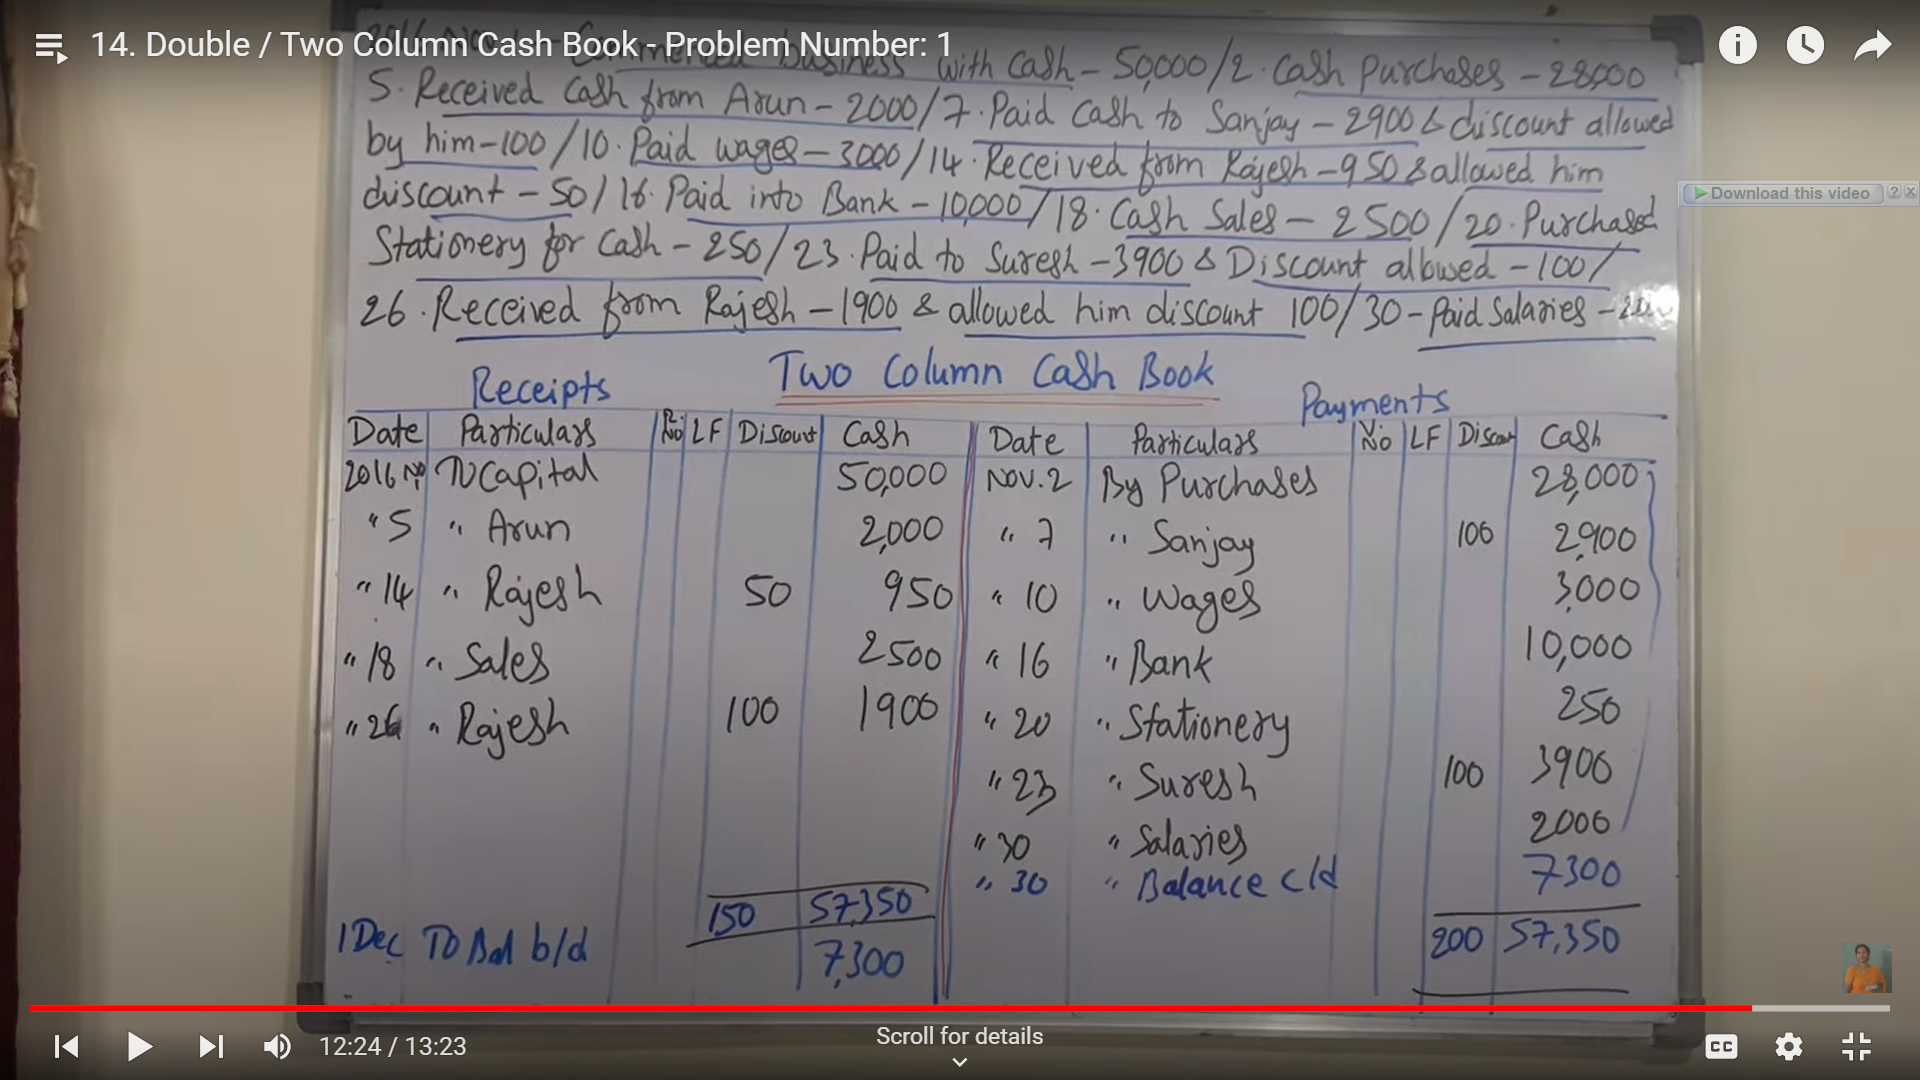 14. Double / Two Column Cash Book - Problem Number: 1
Commenced business with Cash - 50,000/2. Cash Purchases - 28,000
5. Received Cash from Arun - 2000/7. Paid Cash to Sanjay - 2900 & discount allowed
by him - 100/10. Paid wages - 3000/14. Received from Rajesh - 950 & allowed him
discount - 50/16. Paid into Bank - 10,000/18. Cash Sales - 2500/20. Purchased
Download this video
Stationery for Cash - 250/23. Paid to Suresh - 3900 & Discount allowed - 100/
26. Received from Rajesh - 1900 & allowed him discount 100/30 - Paid Salaries -
Two Column Cash Book
Receipts Payments
Date Particulars R. No LF Discount Cash Date Particulars V. No LF Discount Cash
2016 To Capital 50,000 Nov. 2 By Purchases 28,000
" 5 " Arun 2,000 " 7 " Sanjay 100 2,900
" 14 " Rajesh 50 950 " 10 " Wages 3,000
" 18 " Sales 2500 " 16 " Bank 10,000
" 26 " Rajesh 100 1900 " 20 " Stationery 250
" 23 " Suresh 100 3900
" 30 " Salaries 2000
" 30 " Balance c/d 7300
150 57,350 200 57,350
1 Dec To Bal b/d 7,300
12:24 / 13:23
Scroll for details
CC